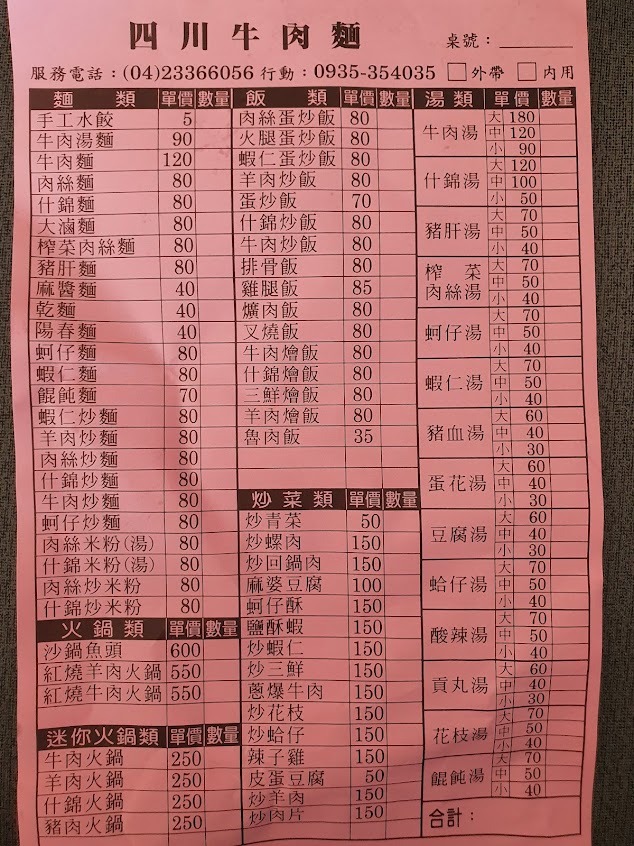 四川牛肉麵
桌號：
服務電話：(04)23366056 行動：0935-354035 □外帶 □內用
麵類 單價 數量
手工水餃 5
牛肉湯麵 90
牛肉麵 120
肉絲麵 80
什錦麵 80
大滷麵 80
榨菜肉絲麵 80
豬肝麵 80
麻醬麵 40
乾麵 40
陽春麵 40
蚵仔麵 80
蝦仁麵 80
餛飩麵 70
蝦仁炒麵 80
羊肉炒麵 80
肉絲炒麵 80
什錦炒麵 80
牛肉炒麵 80
蚵仔炒麵 80
肉絲米粉(湯) 80
什錦米粉(湯) 80
肉絲炒米粉 80
什錦炒米粉 80
火鍋類 單價 數量
沙鍋魚頭 600
紅燒羊肉火鍋 550
紅燒牛肉火鍋 550
迷你火鍋類 單價 數量
牛肉火鍋 250
羊肉火鍋 250
什錦火鍋 250
豬肉火鍋 250
飯類 單價 數量
肉絲蛋炒飯 80
火腿蛋炒飯 80
蝦仁蛋炒飯 80
羊肉炒飯 80
蛋炒飯 70
什錦炒飯 80
牛肉炒飯 80
排骨飯 80
雞腿飯 85
爌肉飯 80
叉燒飯 80
牛肉燴飯 80
什錦燴飯 80
三鮮燴飯 80
羊肉燴飯 80
魯肉飯 35
炒菜類 單價 數量
炒青菜 50
炒螺肉 150
炒回鍋肉 150
麻婆豆腐 100
蚵仔酥 150
鹽酥蝦 150
炒蝦仁 150
炒三鮮 150
蔥爆牛肉 150
炒花枝 150
炒蛤仔 150
辣子雞 150
皮蛋豆腐 50
炒羊肉 150
炒肉片 150
湯類 單價 數量
牛肉湯 大 180
中 120
小 90
什錦湯 大 120
中 100
小 50
豬肝湯 大 70
中 50
小 40
榨菜肉絲湯 大 70
中 50
小 40
蚵仔湯 大 70
中 50
小 40
蝦仁湯 大 70
中 50
小 40
豬血湯 大 60
中 40
小 30
蛋花湯 大 60
中 40
小 30
豆腐湯 大 60
中 40
小 30
蛤仔湯 大 70
中 50
小 40
酸辣湯 大 70
中 50
小 40
貢丸湯 大 60
中 40
小 30
花枝湯 大 70
中 50
小 40
餛飩湯 大 70
中 50
小 40
合計：